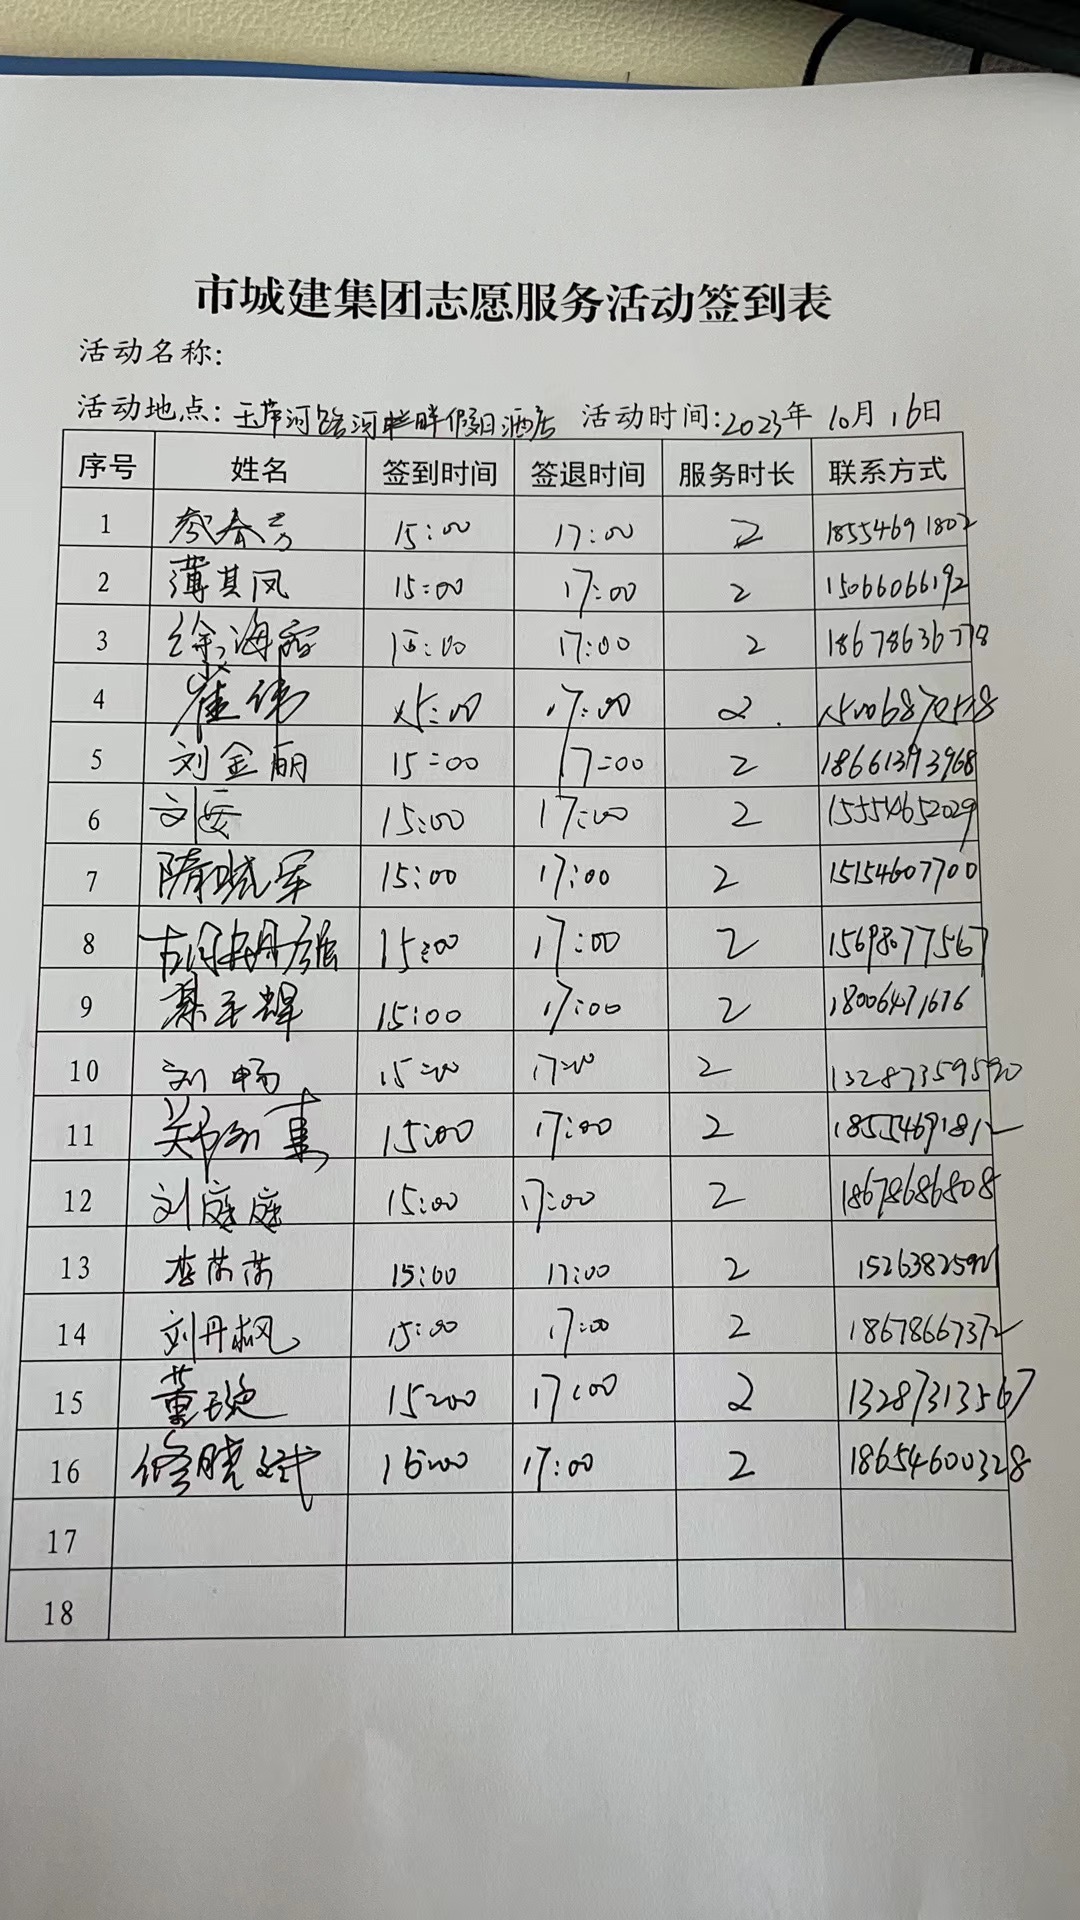 市城建集团志愿服务活动签到表
活动名称:
活动地点: 玉带河路河畔假日酒店 活动时间:2023年 10月 16日
序号 姓名 签到时间 签退时间 服务时长 联系方式
1 15:00 17:00 2 18554691802
2 薄其凤 15:00 17:00 2 15066066192
3 徐海霞 15:00 17:00 2 18678636778
4 崔伟 15:00 17:00 2
5 刘金丽 15:00 17:00 2 18661393968
6 刘安 15:00 17:00 2 15554652029
7 隋晓军 15:00 17:00 2 15154607700
8 15:00 17:00 2 15698077567
9 綦玉辉 15:00 17:00 2 18006471676
10 刘畅 15:00 17:00 2 13287359590
11 15:00 17:00 2 18554691812
12 刘庭庭 15:00 17:00 2 18678686808
13 李芾芾 15:00 17:00 2 15263825921
14 刘丹枫 15:00 17:00 2 18678667372
15 董琰 15:00 17:00 2 13287313567
16 修晓斌 16:00 17:00 2 18654600328
17
18